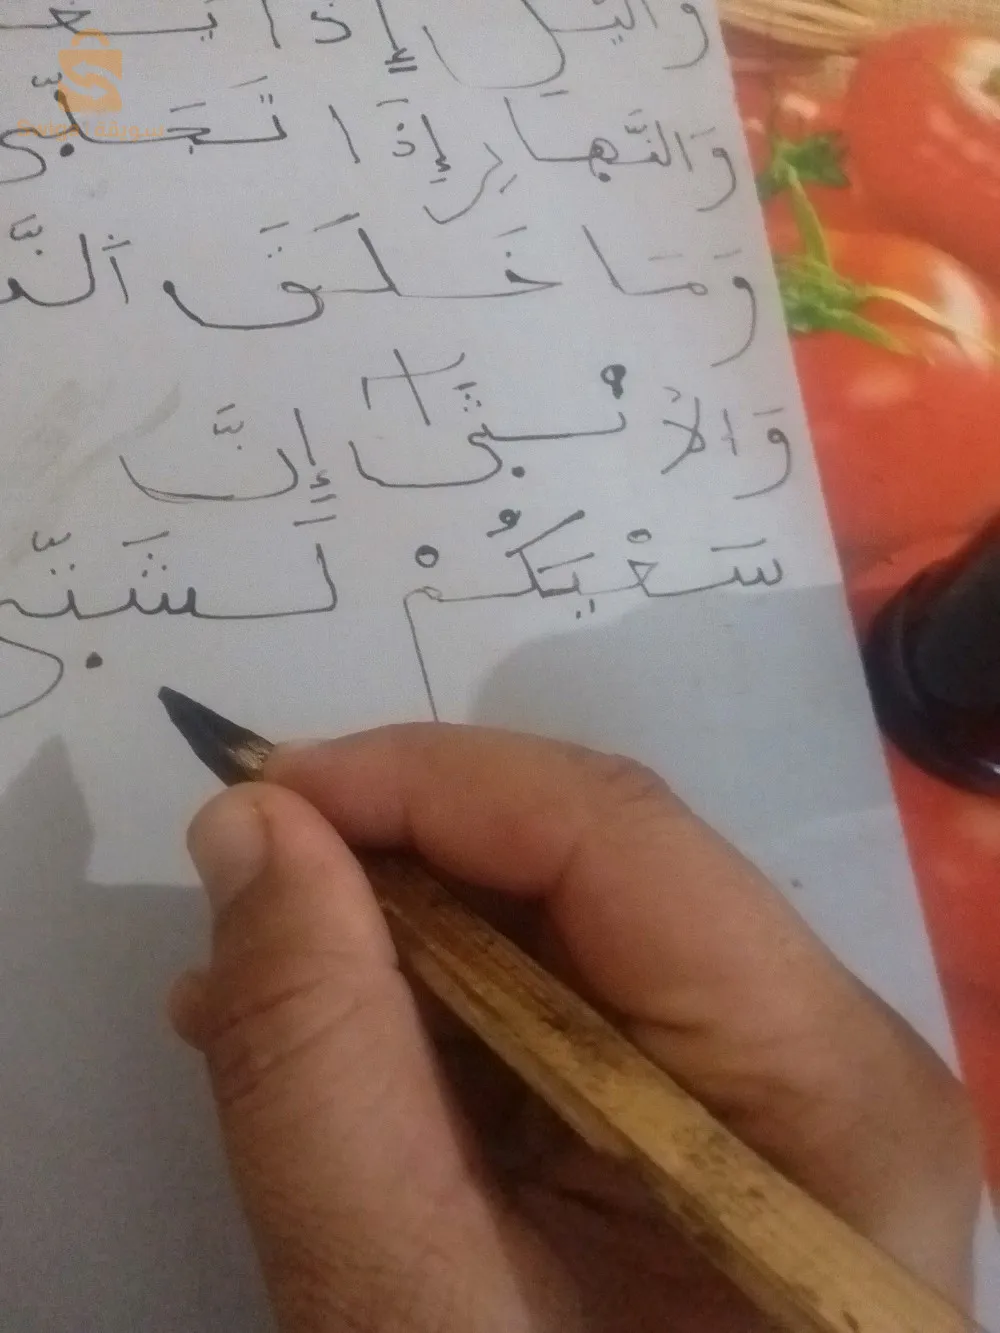 وَالَّيْلِ إِذَا يَغْ
وَالنَّهَارِ إِذَا تَجَلَّى
وَمَا خَلَقَ اَلذَّ
وَالْأُنْثَى إِنَّ
سَعْيَكُمْ لَشَتَّى
سويقة